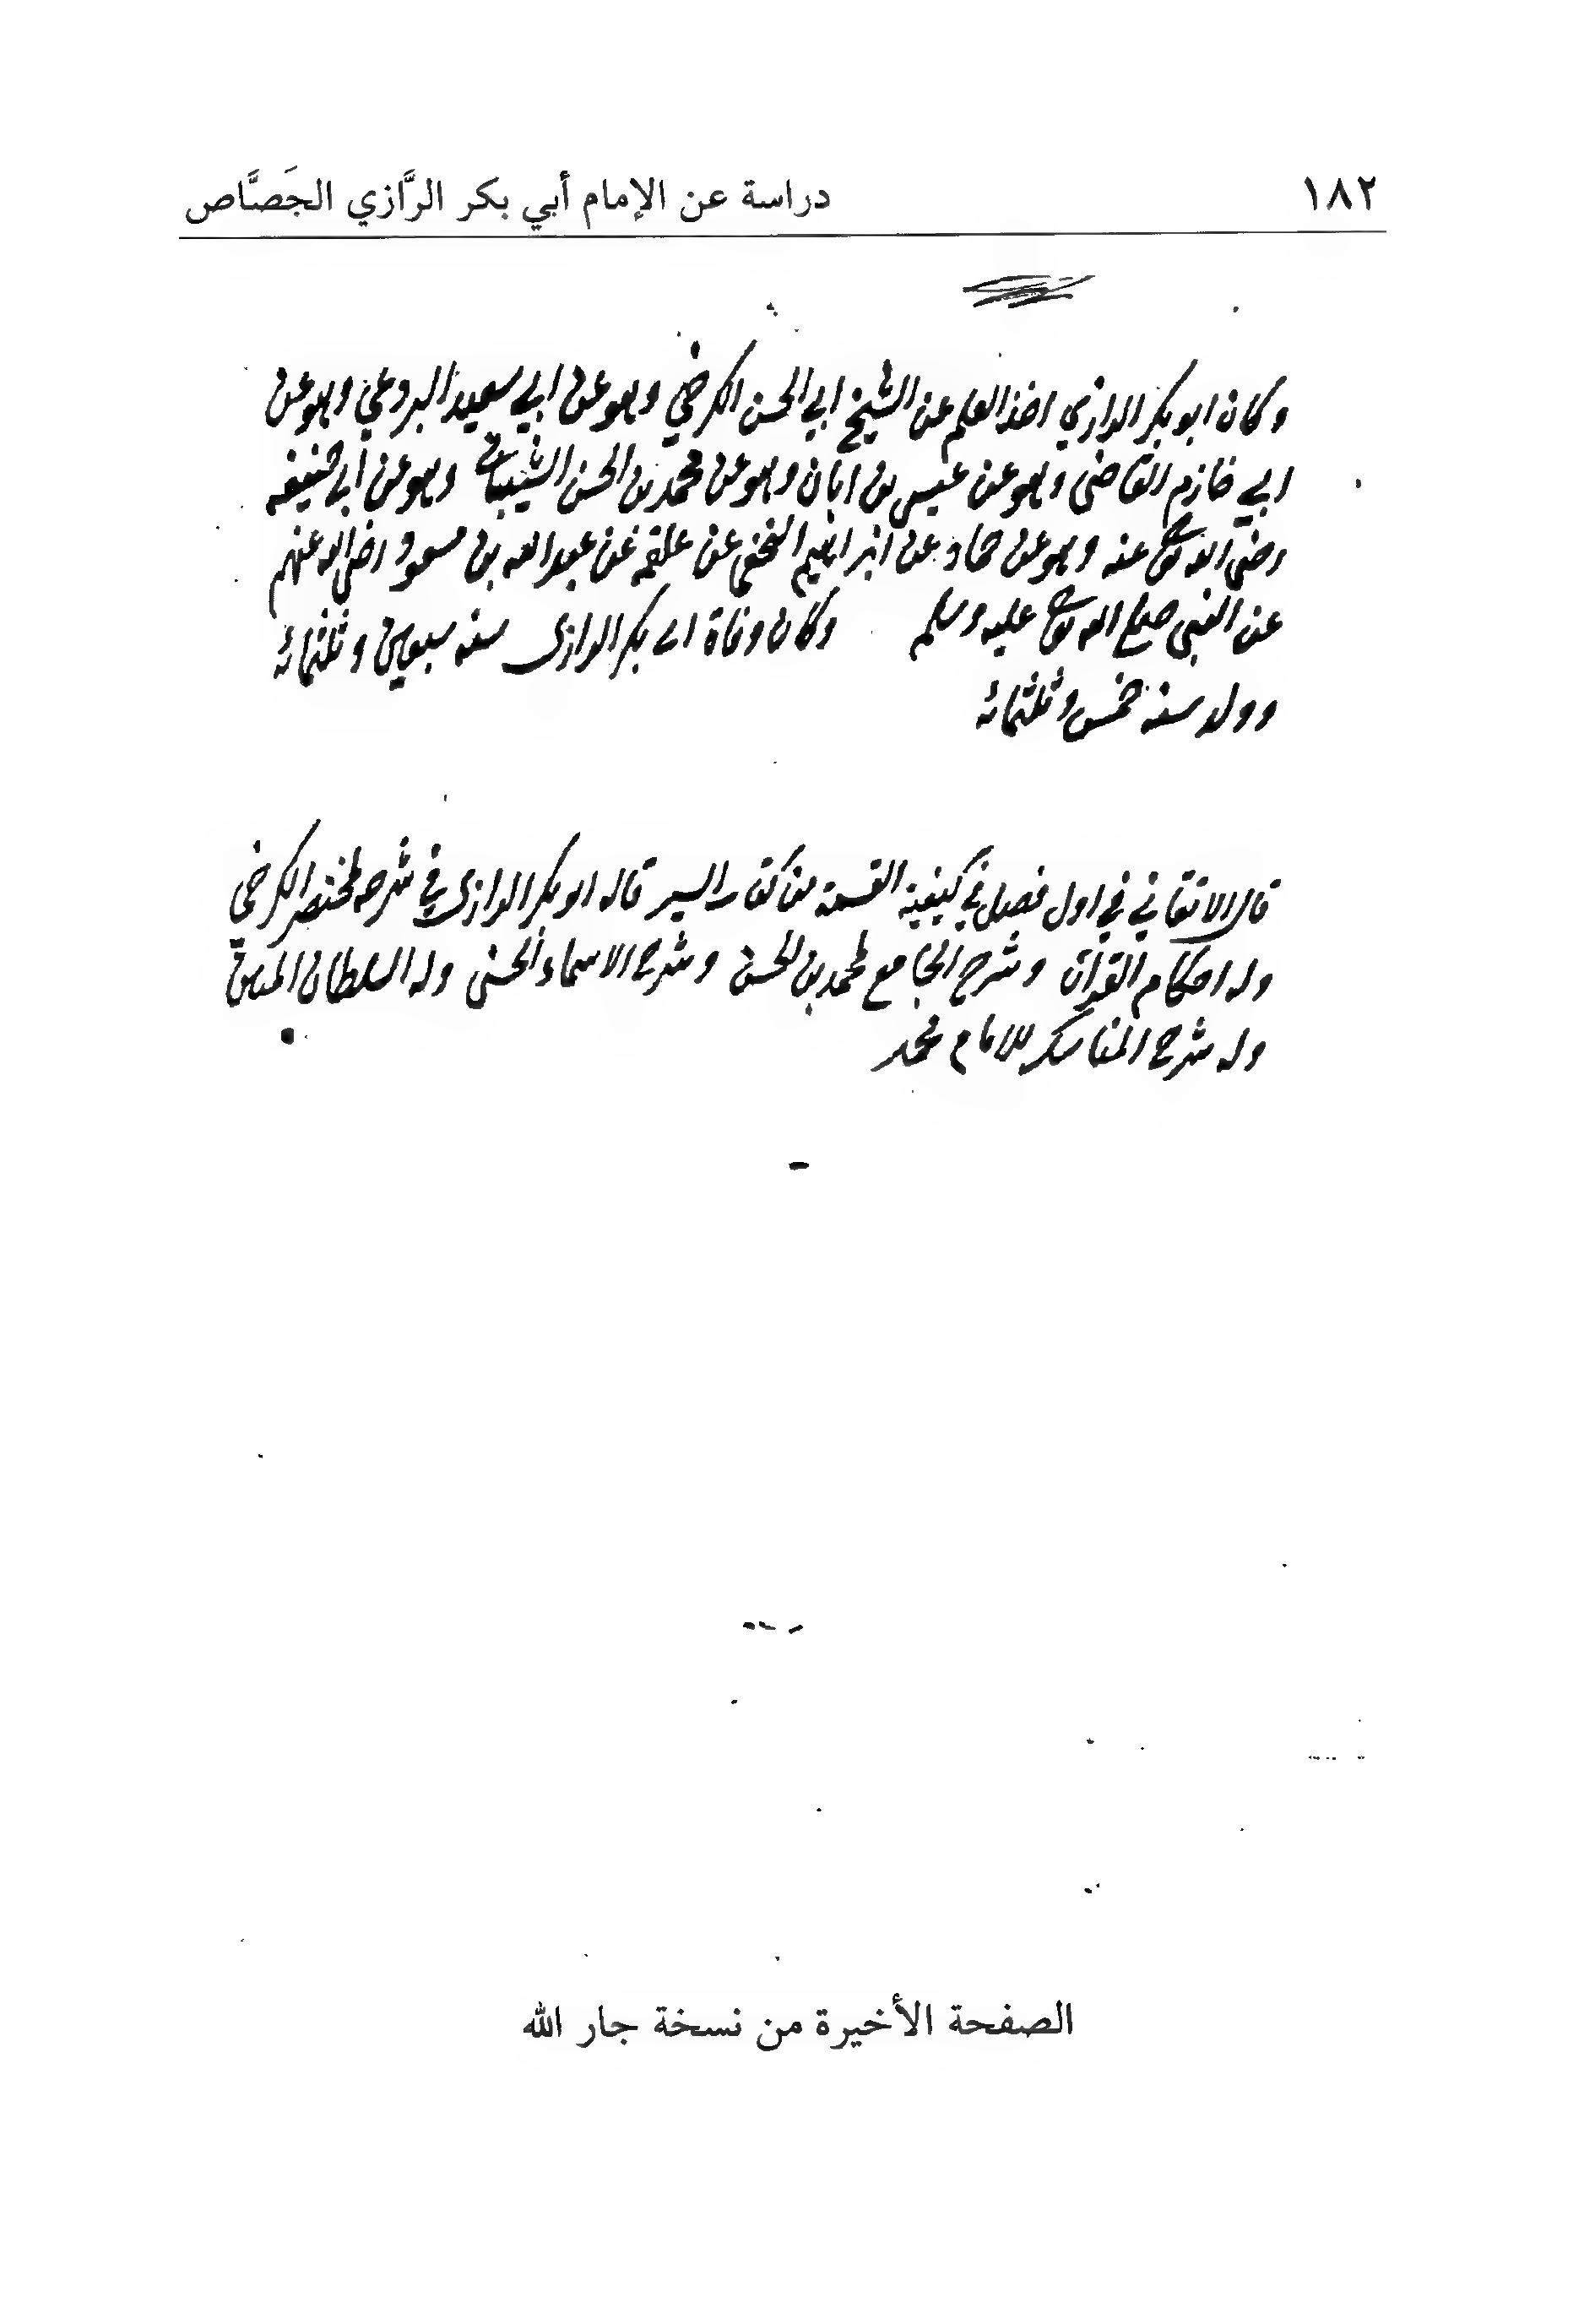 ١٨٢ دراسة عن الإمام أبي بكر الرَّازي الجَصَّاص
وكان ابو بكر الرازي اخذ العلم عن الشيخ ابي الحسن الكرخي وهو عن ابي سعيد البردعي وهو عن
ابي خازم القاضي وهو عن عيسى بن ابان وهو عن محمد بن الحسن الشيباني وهو عن أبي حنيفه
رضي الله تعالى عنه وهو عن حماد عن ابراهيم النخعي عن علقمه عن عبد الله بن مسعود رضي الله عنهم
عن النبي صلى الله تعالى عليه وسلم وكان وفاة ابي بكر الرازي سنه سبعين وثلثمائه
وولد سنه خمس وثلثمائه
قال الاتقاني في اول فصل في كيفية القسمة من كتاب السير قاله ابو بكر الرازي في شرحه لمختصر الكرخي
وله احكام القران وشرح الجامع لمحمد بن الحسن وشرح الاسماء الحسنى وله السلطان المبين
وله شرح المناسك للامام محمد
الصفحة الأخيرة من نسخة جار الله